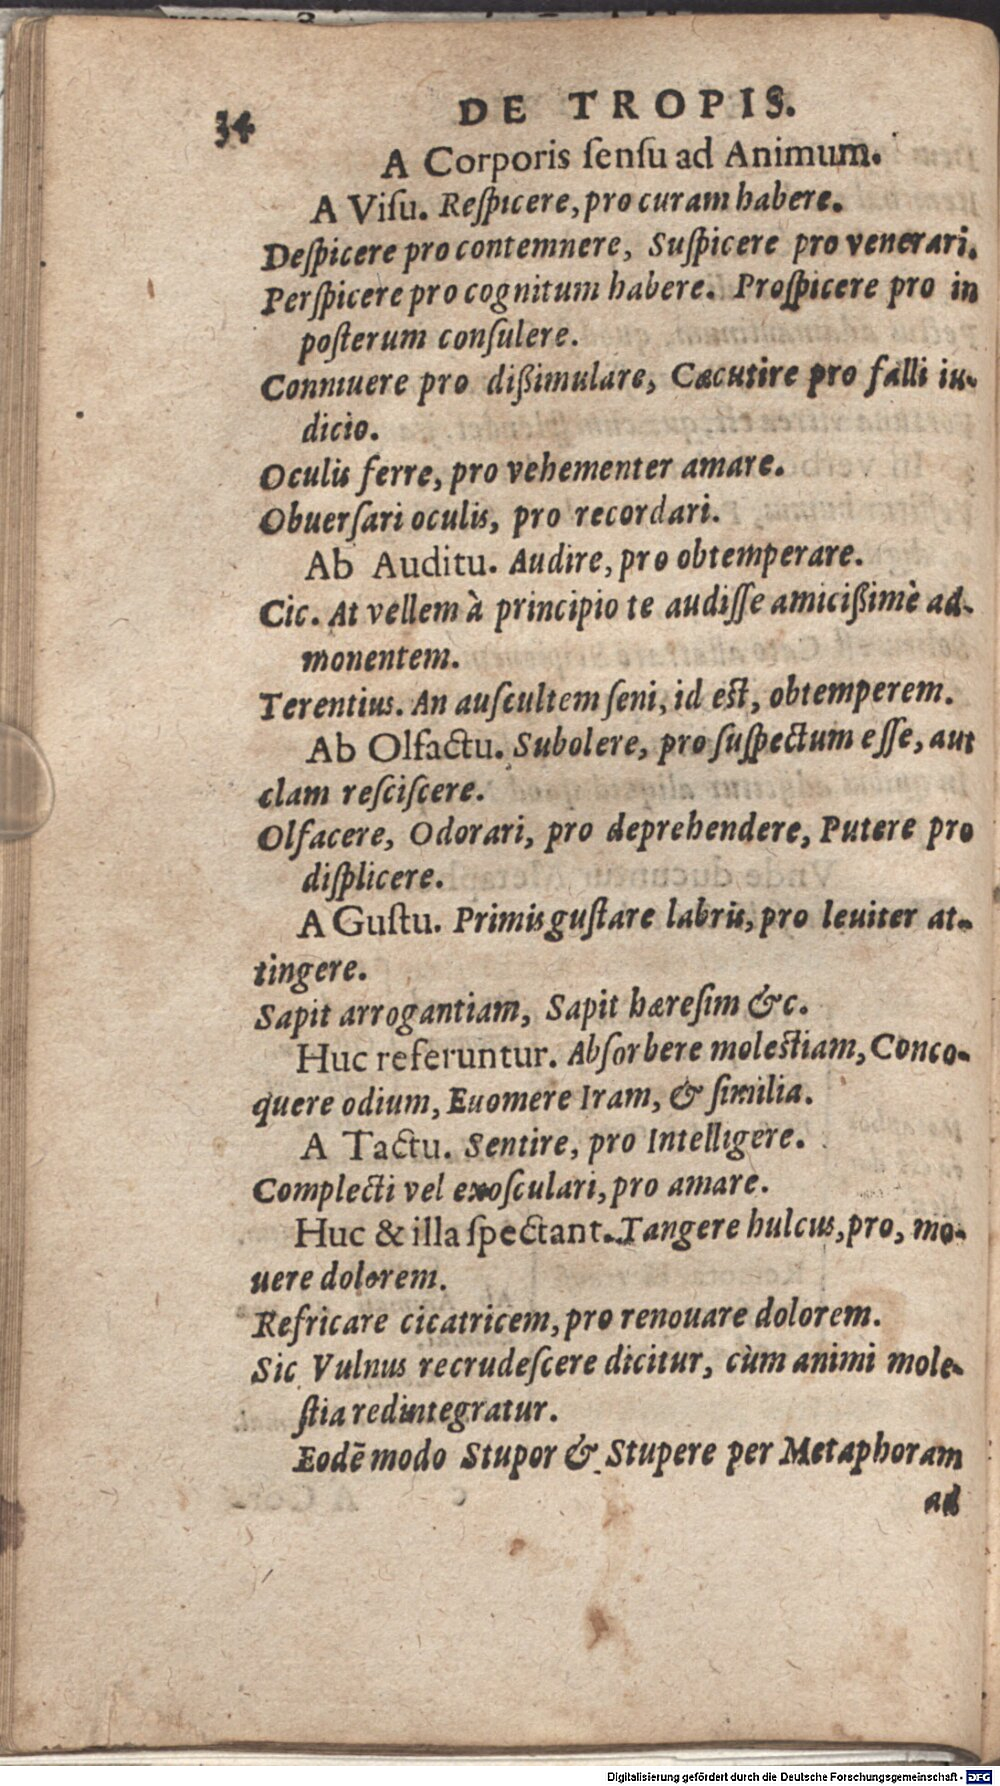 34
DE TROPIS.
A Corporis ſenſu ad Animum.
A Viſu. Reſpicere, pro curam habere.
Deſpicere pro contemnere, Suſpicere pro venerari.
Perſpicere pro cognitum habere. Proſpicere pro in
poſterum conſulere.
Conniuere pro dißimulare, Cæcutire pro falli iu-
dicio.
Oculis ferre, pro vehementer amare.
Obuerſari oculis, pro recordari.
Ab Auditu. Audire, pro obtemperare.
Cic. At vellem à principio te audiſſe amicißimè ad-
monentem.
Terentius. An auſcultem ſeni, id est, obtemperem.
Ab Olfactu. Subolere, pro ſuſpectum eſſe, aut
clam reſciſcere.
Olfacere, Odorari, pro deprehendere, Putere pro
diſplicere.
A Guſtu. Primis guſtare labris, pro leuiter at-
tingere.
Sapit arrogantiam, Sapit hæreſim &c.
Huc referuntur. Abſorbere molestiam, Conco-
quere odium, Euomere Iram, & ſimilia.
A Tactu. Sentire, pro Intelligere.
Complecti vel exoſculari, pro amare.
Huc & illa ſpectant. Tangere hulcus, pro, mo-
uere dolorem.
Refricare cicatricem, pro renouare dolorem.
Sic Vulnus recrudeſcere dicitur, cùm animi mole-
ſtia redintegratur.
Eodē modo Stupor & Stupere per Metaphoram
ad
Digitalisierung gefördert durch die Deutsche Forschungsgemeinschaft - DFG